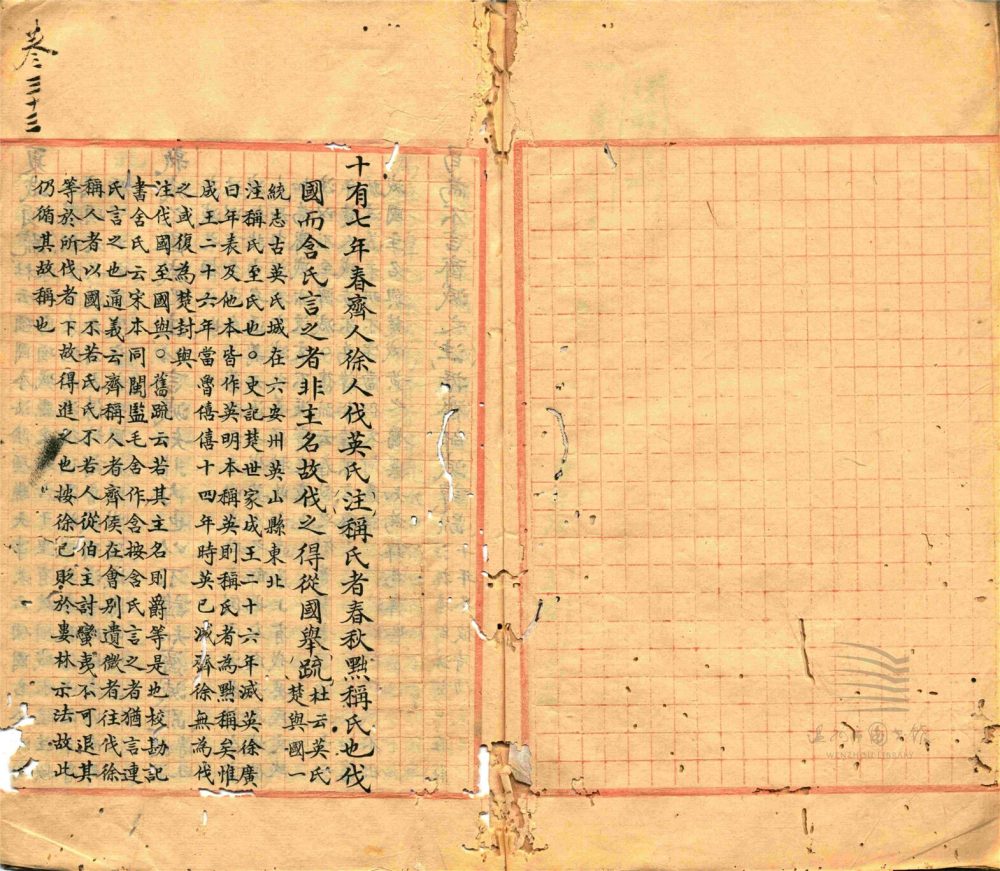 卷三十三
十有七年春齊人徐人伐英氏注稱氏者春秋黜稱氏也伐
國而含氏言之者非主名故伐之得從國舉疏杜云英氏
楚與國一
統志古英氏城在六安州英山縣東北
注稱氏至氏也。史記楚世家成王二十六年滅英徐廣
曰年表及他本皆作英明本稱英則稱氏者為黜稱矣惟
成王二十六年當魯僖僖十四年時英已滅齊徐無為伐
之或復為楚封與
注伐國至國與。舊疏云若其主名則爵等是也校勘記
書舍氏云宋本同閩監毛含作含按含氏言之者猶言連
氏言之也通義云齊稱人者齊侯在會别遣微者往伐徐
稱人者以國不若氏氏不若人從伯主討蠻夷不可退其
等於所伐者下故得進之也按徐已貶於婁林示法故此
仍循其故稱也
温州市图书馆
WENZHOU LIBRARY